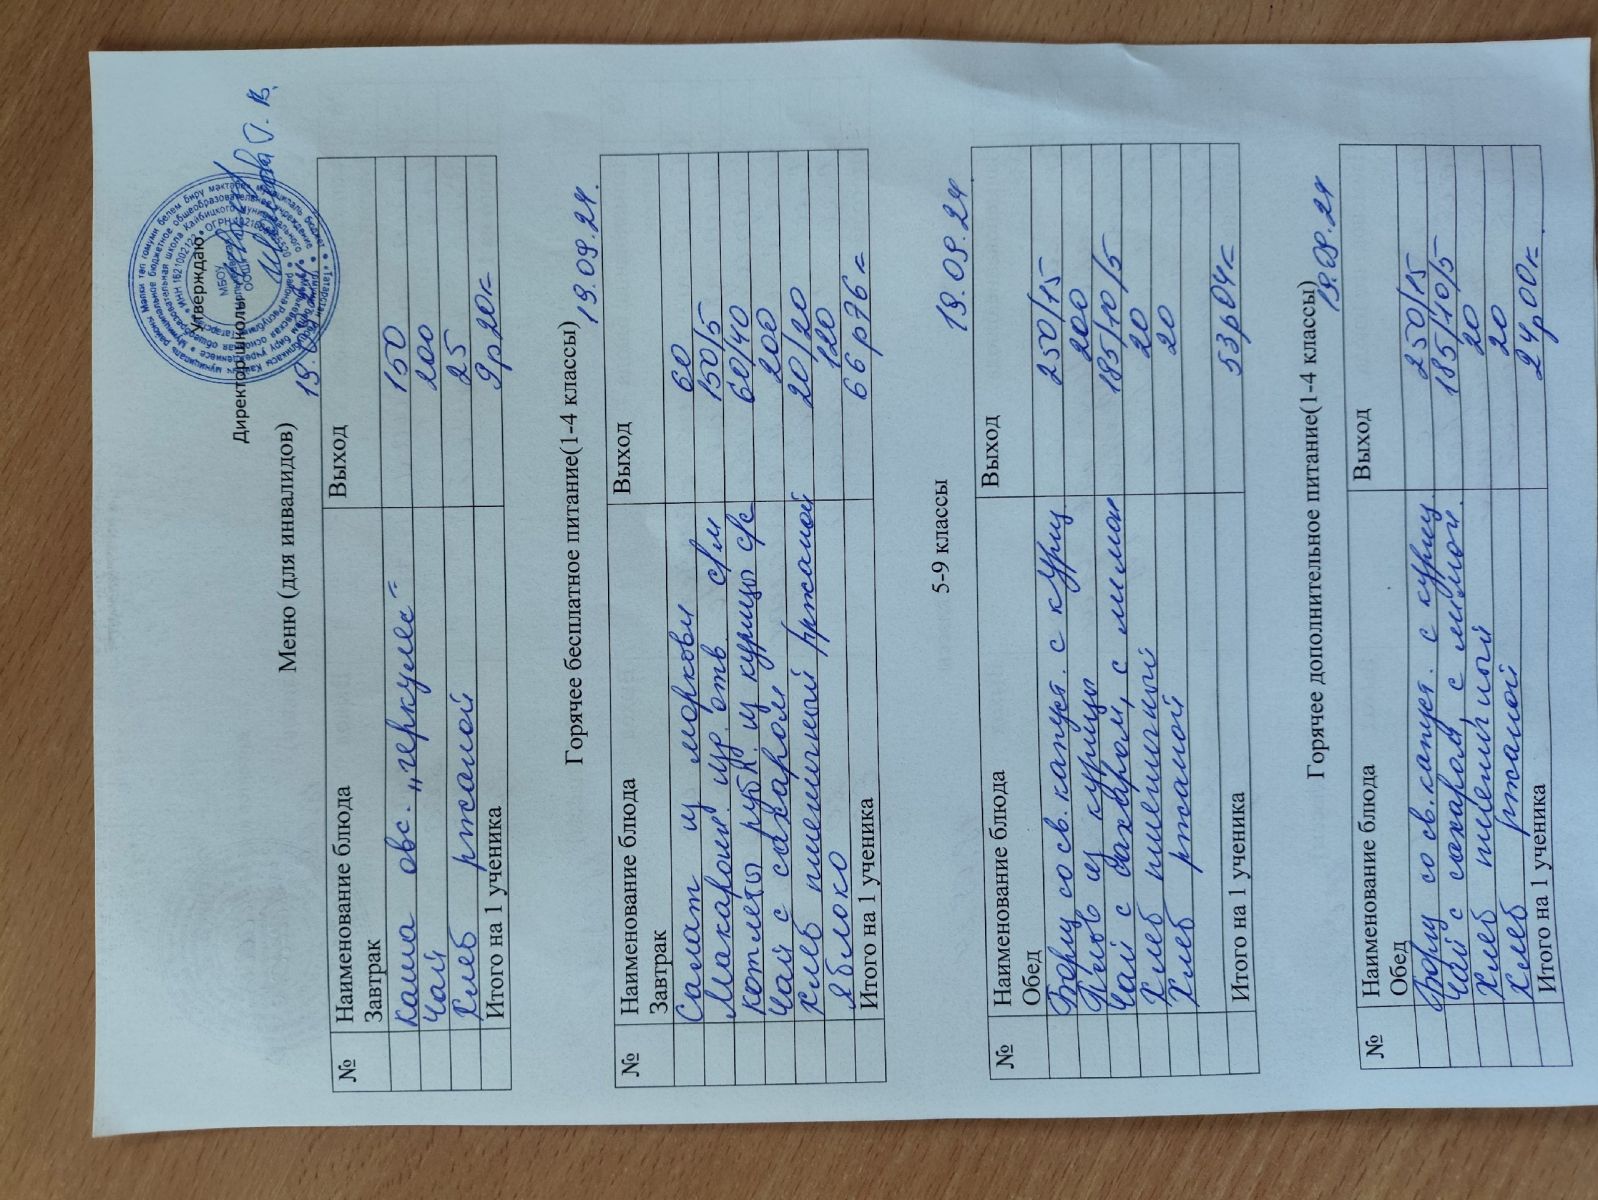 Утверждаю
Директор школы
Меню (для инвалидов) 19.09.24
№ Наименование блюда Выход
Завтрак
Каша овс. "геркулес" 150
Чай 200
Хлеб ржаной 25
Итого на 1 ученика 9р20к
Горячее бесплатное питание(1-4 классы) 19.09.24.
№ Наименование блюда Выход
Завтрак
Салат из моркови 60
Макарон. из. отв. с/м 150/5
Котлеты руб. из курицы с/с 60/40
Чай с сахаром 200
Хлеб пшеничный ржаной 20/20
Яблоко 120
Итого на 1 ученика 66р76к
5-9 классы 19.09.24.
№ Наименование блюда Выход
Обед
Борщ со св.капуст. с куриц. 250/15
Плов из курицы 200
Чай с сахаром, с лимон 185/10/5
Хлеб пшеничный 20
Хлеб ржаной 20
Итого на 1 ученика 53р04к
Горячее дополнительное питание(1-4 классы) 19.09.24
№ Наименование блюда Выход
Обед
Борщ со св.капуст. с куриц. 250/15
Чай с сахаром, с лимон. 185/10/5
Хлеб пшеничный 20
Хлеб ржаной 20
Итого на 1 ученика 24р00к.